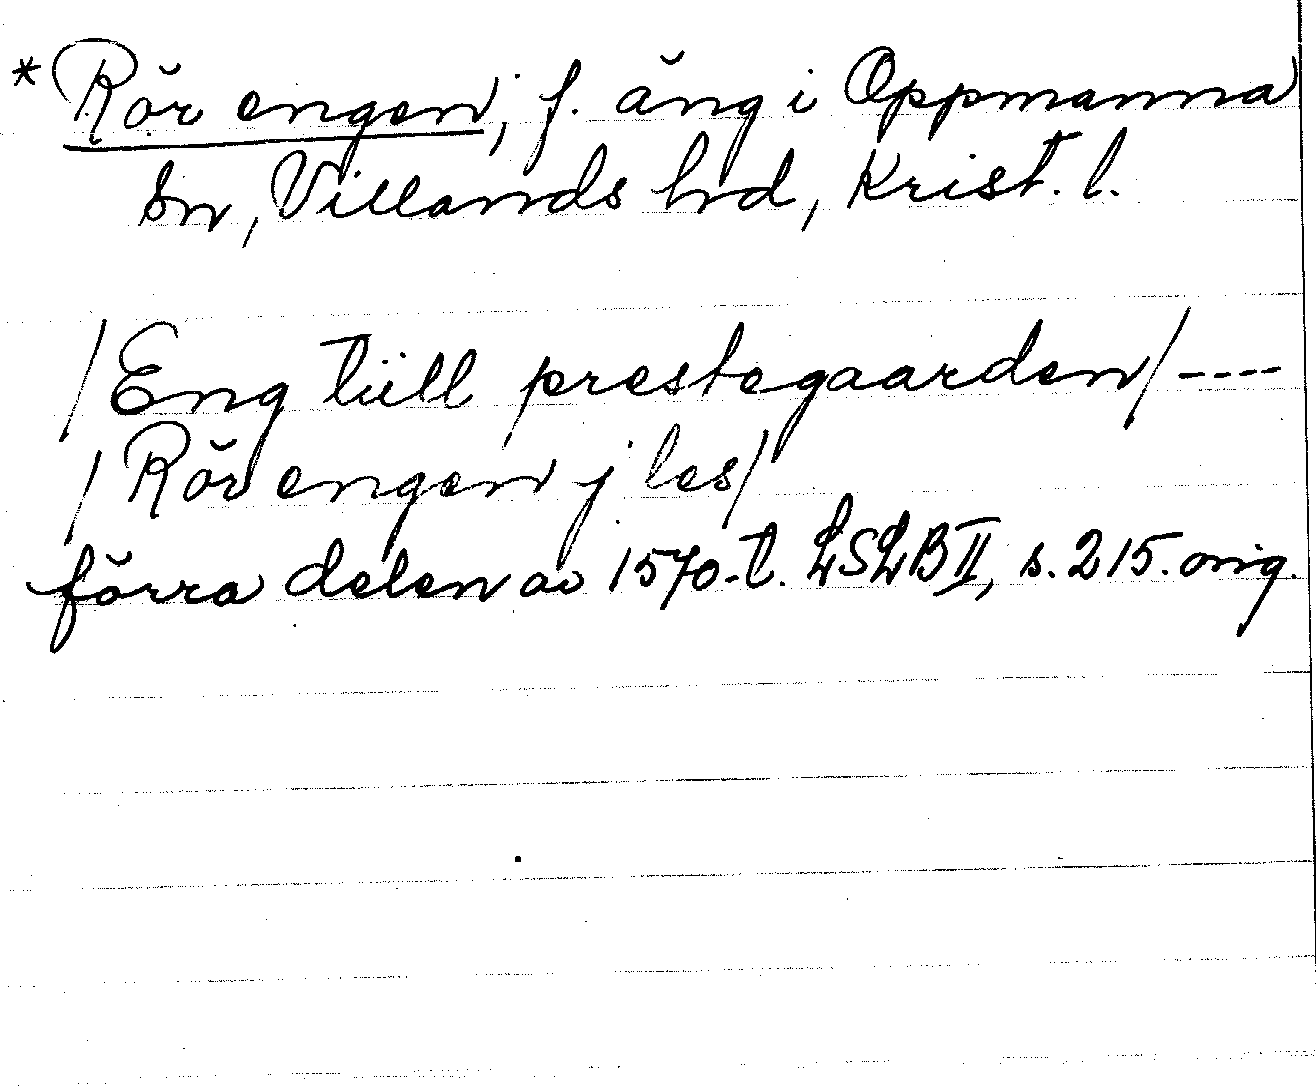 * Rör engen, f. äng i Oppmanna
sn, Villands hd, Krist. l.
/Eng tüll prestegaarden/ ----
/Rör engen j les/
förra delen av 1570-t. LSLB II, s. 215. orig.